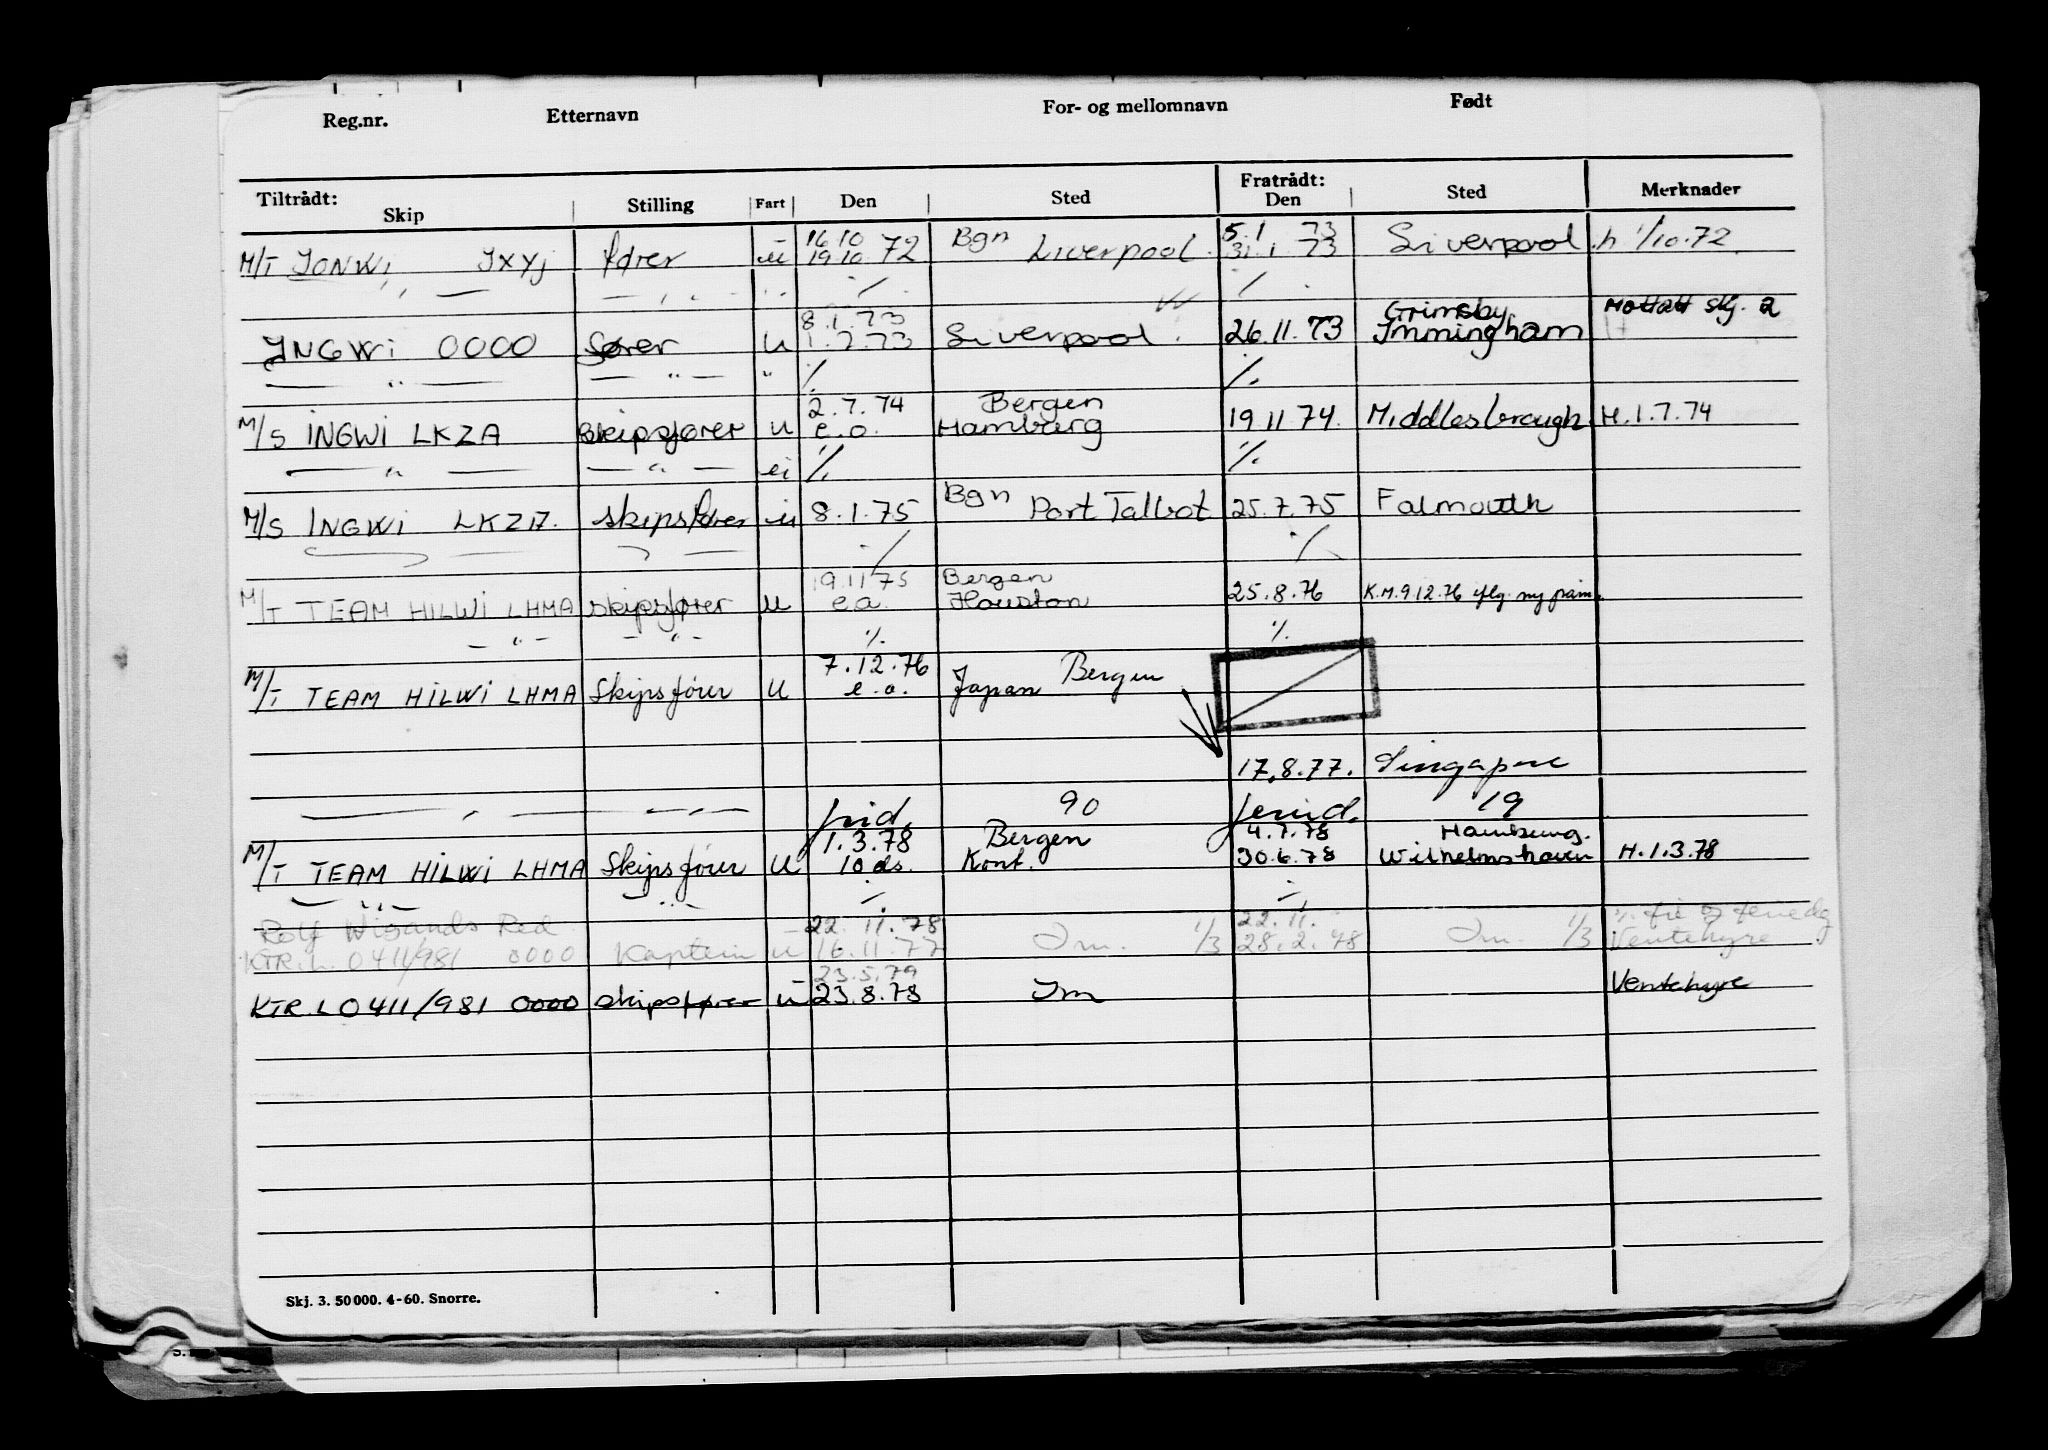 Reg.nr. Etternavn For- og mellomnavn Født
Tiltrådt: Skip Stilling Fart Den Sted Fratrådt: Den Sted Merknader
16 10 Bgn 5.1 73
M/T JONWI JXYJ fører u 19.10.72 Liverpool. 31.1.73 Liverpool h 1/10.72
— " — — " — " ·/· ·/·
8.1.73 Grimsby Mottatt skj. 2
INGWI 0000 fører u 1.2.73 Liverpool. 26.11.73 Immingham
— " — — " — " ·/. ·/.
2.7.74 Bergen
M/S INGWI LKZA Skipsfører u e.o. Hamburg 19 11 74. Middlesbrough H.1.7.74
— " — — " — ei ·/. ·/.
Bgn
M/S INGWI LKZA. skipsfører u 8.1.75 Port Talbot 25.7.75 Falmouth
·/· ·/·
19.11 75 Bergen
M/T TEAM HILWI LHMA skipsfører u e.o. Houston 25.8.76 K.M.9.12.76 iflg. ny påm.
— " — — " — ·/. ·/.
7.12.76 Bergen
M/T TEAM HILWI LHMA Skipsfører u e.o. Japan
17.8.77. Singapore
— " — — " — frid. 90 feried. 19
1.3.78 Bergen 4.7.78 Hamburg.
M/T TEAM HILWI LHMA Skipsfører u 10 ds. Kont. 30.6.78 Wilhelmshaven H.1.3.78
— " — — " — ·/. ·/.
Rolf Wigands Red 22.11.78 22.11. ·/. fri og feriedg
KTR.L. 0411/981 0000 Kaptein u 16.11.77 Im. 1/3 28.2.78 Im. 1/3 Ventehyre
23.5.79
KTR.L 0411/981 0000 skipsfører u 23.8.78 Im Ventehyre
Skj. 3. 50 000. 4-60. Snorre.